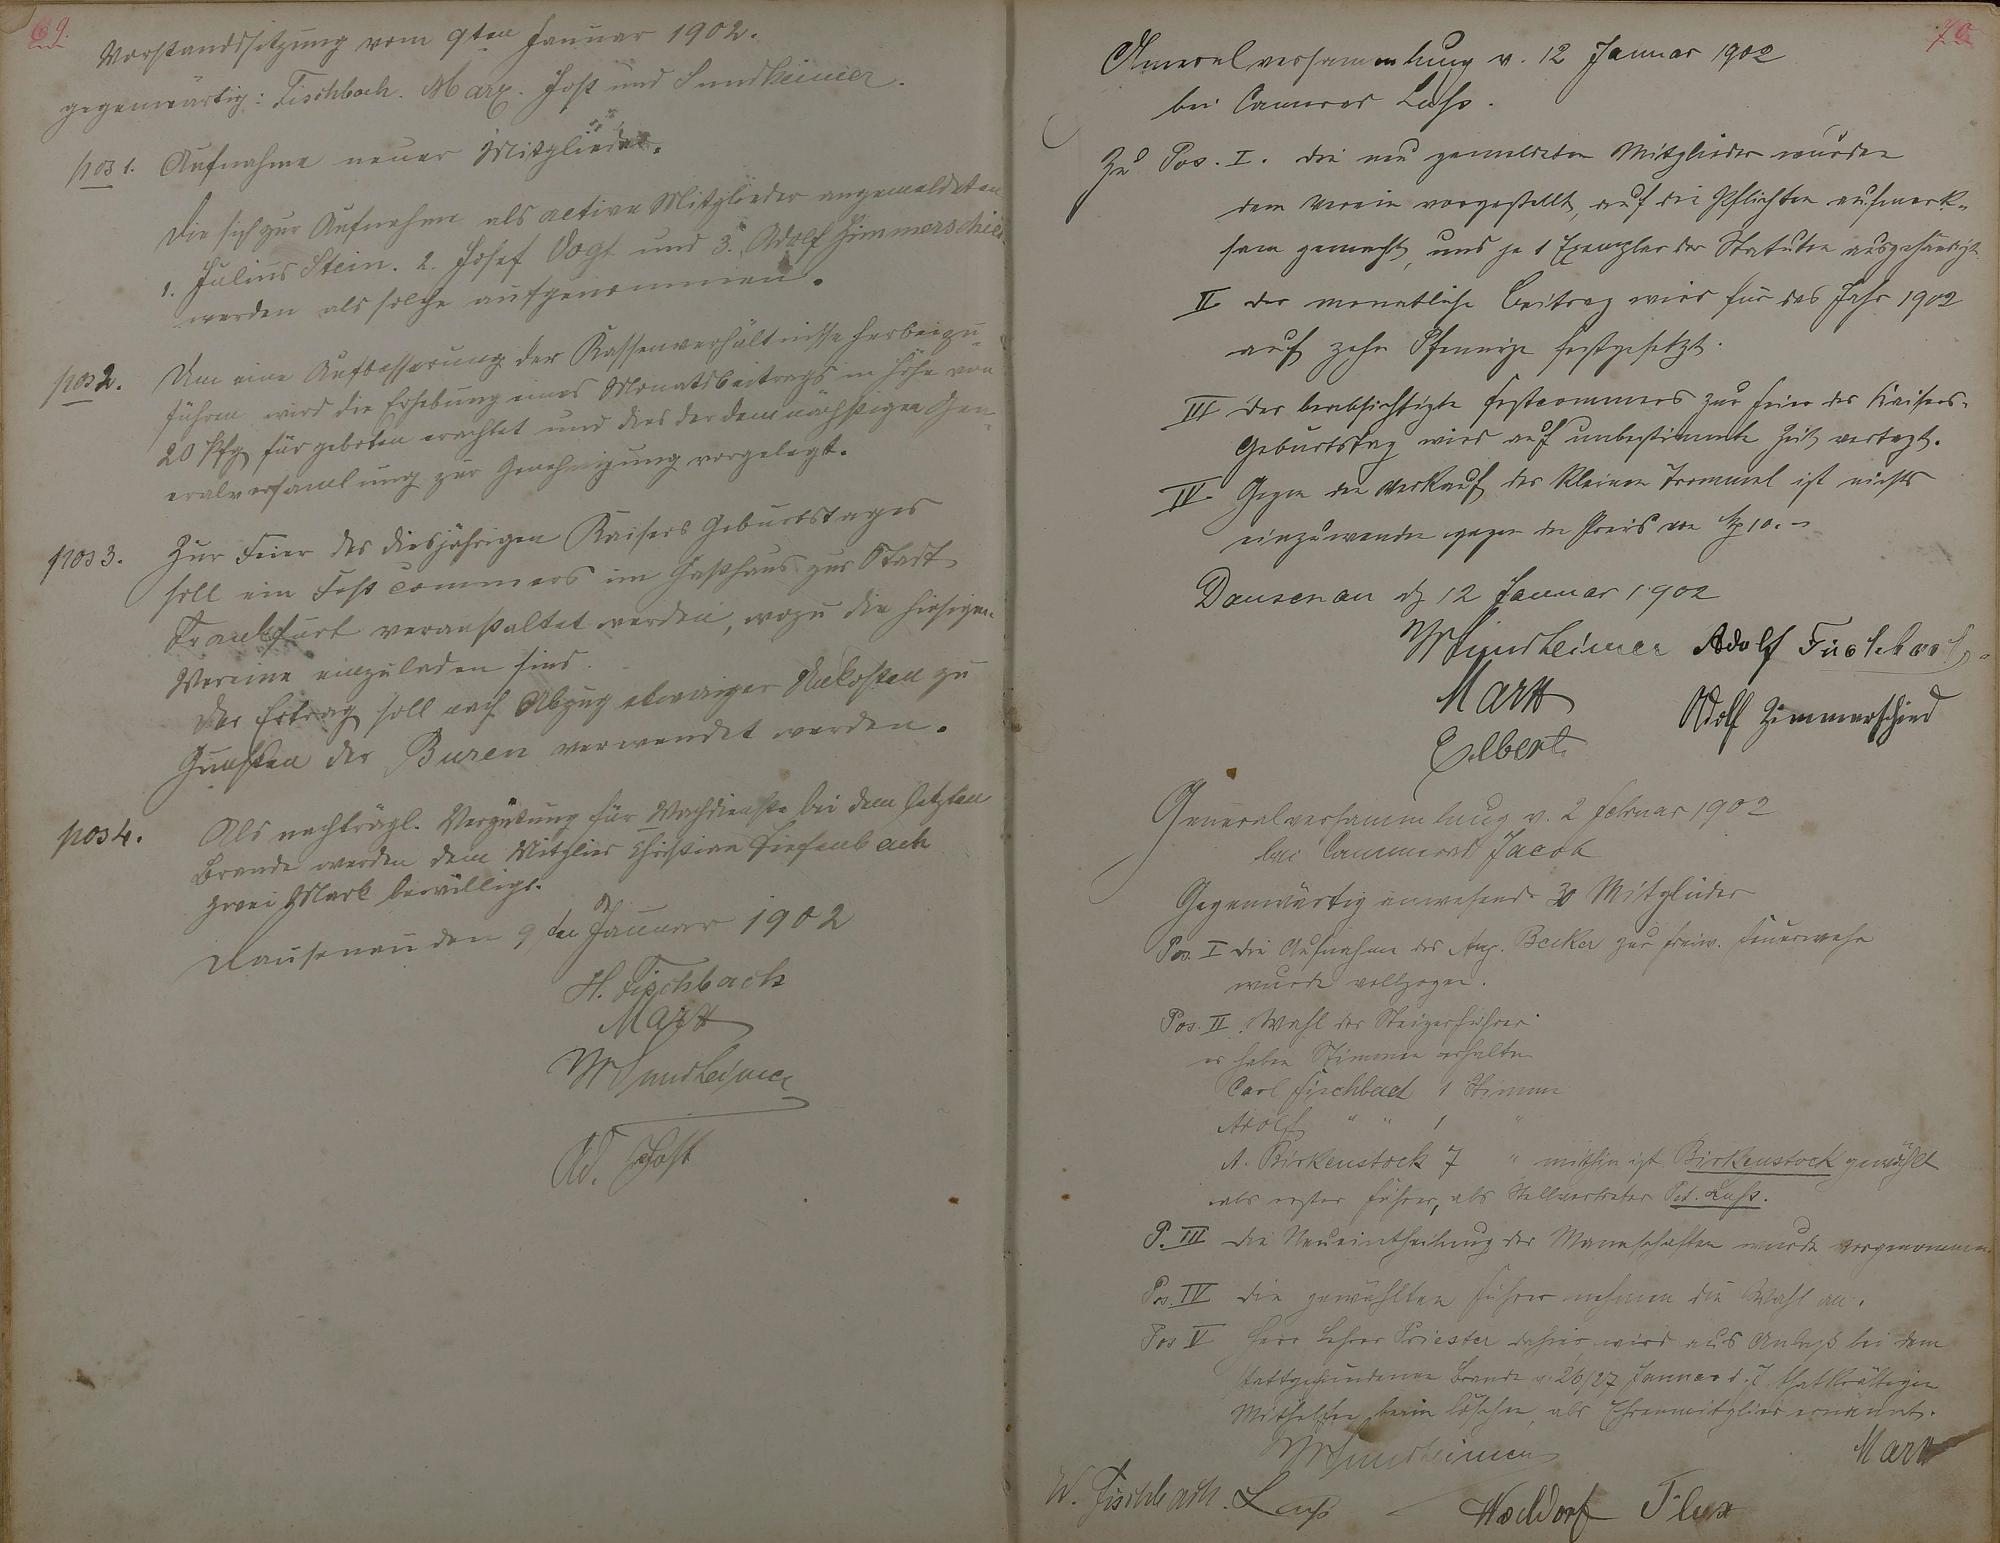 69.
Vorstandssitzung vom 9ten Januar 1902.
gegenwärtig: Fischbach. Marx. Jost und Sundheimer.
pos 1. Aufnahme neuer Mitglieder.
Die sich zur Aufnahme als active Mitglieder angemeldeten
1. Julius Stein. 2. Josef Vogt und 3. Adolf Zimmerschied
werden als solche aufgenommen.
pos 2. Um eine Aufbesserung der Kassenverhältnisse herbeizu-
führen wird die Erhebung eines Monatsbeitrags in Höhe von
20 Pfg für geboten erachtet und dies der demnächstigen Gen-
eralversamlung zur Genehmigung vorgelegt.
pos 3. Zur Feier des diesjährigen Kaisers Geburtstages
soll ein Festcommers im Gasthaus zur Stadt
Frankfurt veranstaltet werden, wozu die hiesigen
Vereine einzuladen sind.
Der Ertrag soll nach Abzug etwaiger Unkosten zu
Gunsten der Buren verwendet werden.
pos 4. Als nachträgl. Vergütung für Wachdienste bei dem letzten
Brande werden dem Mitglied Christian Tiefenbach
zwei Mark bewilligt.
Dausenau den 9ten Januar 1902
H. Fischbach
Marx
W Sundheimer
Ad. Jost
70
Generalversammlung v. 12 Januar 1902
bei Camerad Lahs.
Zu Pos. I. die neu gemeldeten Mitglieder wurden
dem Verein vorgestellt, auf die Pflichten aufmerk-
sam gemacht, und je 1 Exemplar der Statuten ausgehändigt
II der monatliche Beitrag wird für das Jahr 1902
auf zehn Pfennige festgesetzt.
III Der beabsichtigte Festcommers zur Feier des Kaisers-
Geburtstag wird auf unbestimmte Zeit vertagt.
IV. Gegen den Verkauf der kleinen Trommel ist nichts
einzuwenden gegen den Preis von M 10.-
Dausenau d 12 Januar 1902
W Sundheimer Adolf Fischbach
Marx
Adolf Zimmerschied
Elbert
Generalversammlung v. 2 Februar 1902
bei Camerad Jacob
Gegenwärtig anwesend 30 Mitglieder
Pos. I Die Aufnahme des Aug. Becker zur freiw. Feuerwehr
wurde vollzogen.
Pos. II. Wahl der Steigerführer
es haben Stimmen erhalten
Carl Fischbach 1 Stimme
Adolf " " 1 "
A. Birkenstock 7 " mithin ist Birkenstock gewählt
als erster Führer, als Stellvertreter Pet. Lahs.
P. III Die Neueintheilung der Mannschaften wurde vorgenommen
Pos. IV Die gewählten Führer nehmen die Wahl an.
Pos V Herr Lehrer Priester dahier wird aus Anlaß bei dem
stattgefundenen Brande v. 26/27 Januar d. J thatkräftigen
Mithelfen beim löschen als Ehrenmitglied ernannt.
W Sundheimer
Marx
W. Fischbach.